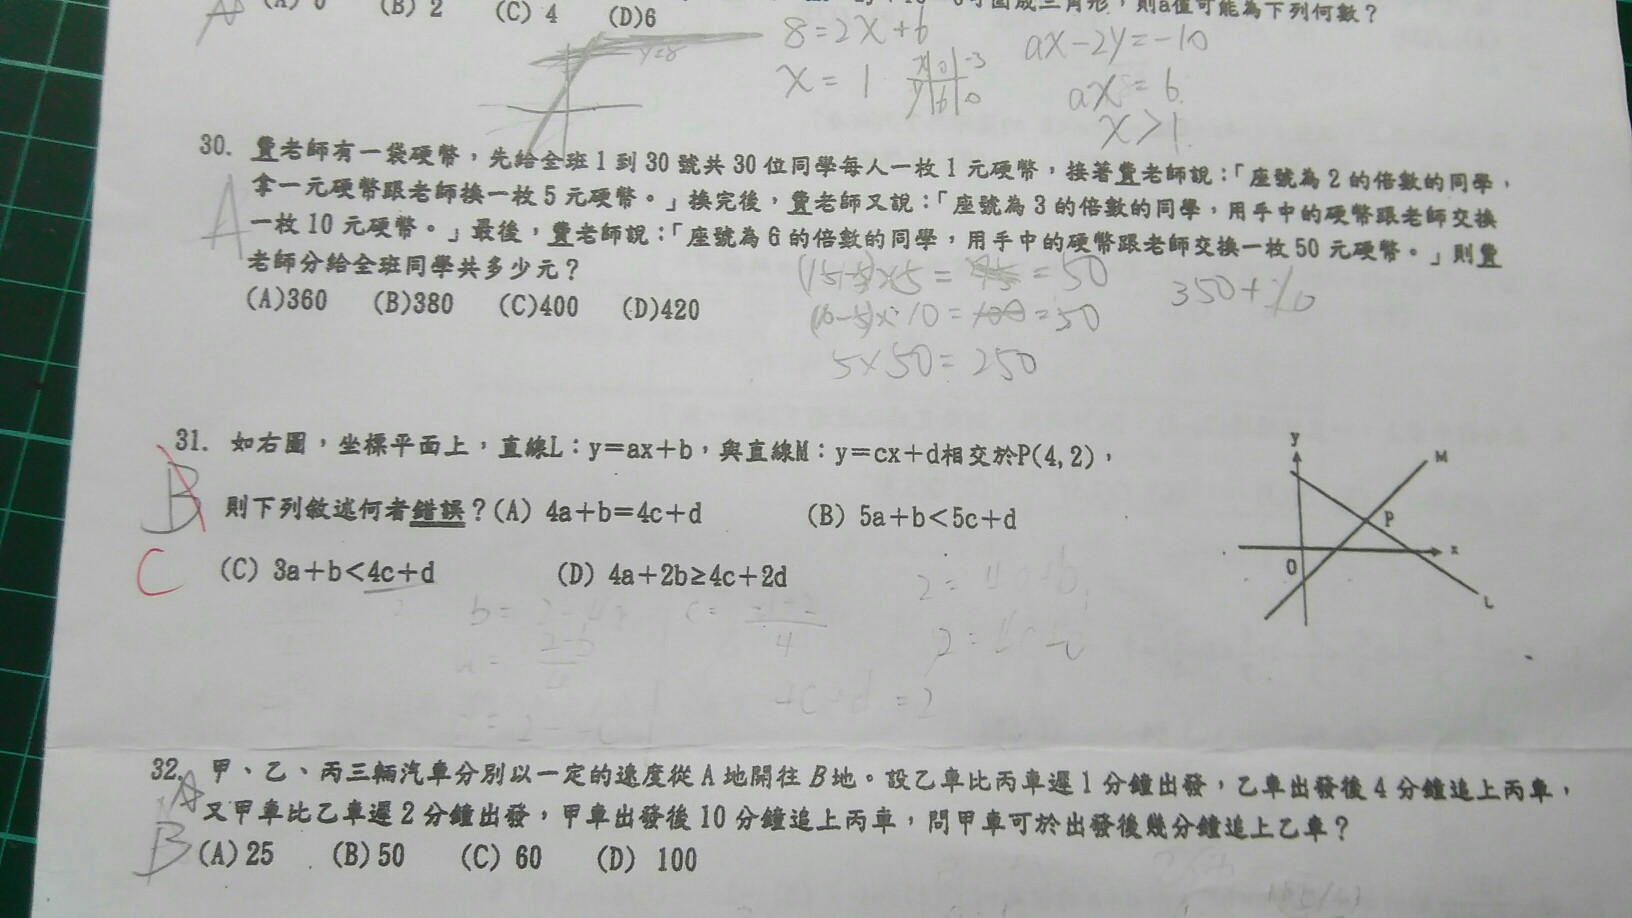 (A) 0 (B) 2 (C) 4 (D)6
圍成三角形，則a值可能為下列何數？
y=8
8=2x+6
x=1
x 0 -3
y 6 0
ax-2y=-10
ax=6
x>1
30. 豐老師有一袋硬幣，先給全班1到30號共30位同學每人一枚1元硬幣，接著豐老師說：「座號為2的倍數的同學，
拿一元硬幣跟老師換一枚5元硬幣。」換完後，豐老師又說：「座號為3的倍數的同學，用手中的硬幣跟老師交換
一枚10元硬幣。」最後，豐老師說：「座號為6的倍數的同學，用手中的硬幣跟老師交換一枚50元硬幣。」則豐
老師分給全班同學共多少元？
A
(A)360 (B)380 (C)400 (D)420
(15-5)x5= =50
(10-5)x10=100=50
5x50=250
350+10
31. 如右圖，坐標平面上，直線L：y=ax+b，與直線M：y=cx+d相交於P(4,2)，
則下列敘述何者錯誤？(A) 4a+b=4c+d (B) 5a+b<5c+d
(C) 3a+b<4c+d (D) 4a+2b≥4c+2d
B
C
y
M
P
x
O
L
32. 甲、乙、丙三輛汽車分別以一定的速度從A地開往B地。設乙車比丙車遲1分鐘出發，乙車出發後4分鐘追上丙車，
又甲車比乙車遲2分鐘出發，甲車出發後10分鐘追上丙車，問甲車可於出發後幾分鐘追上乙車？
A
B
(A)25 (B)50 (C) 60 (D) 100